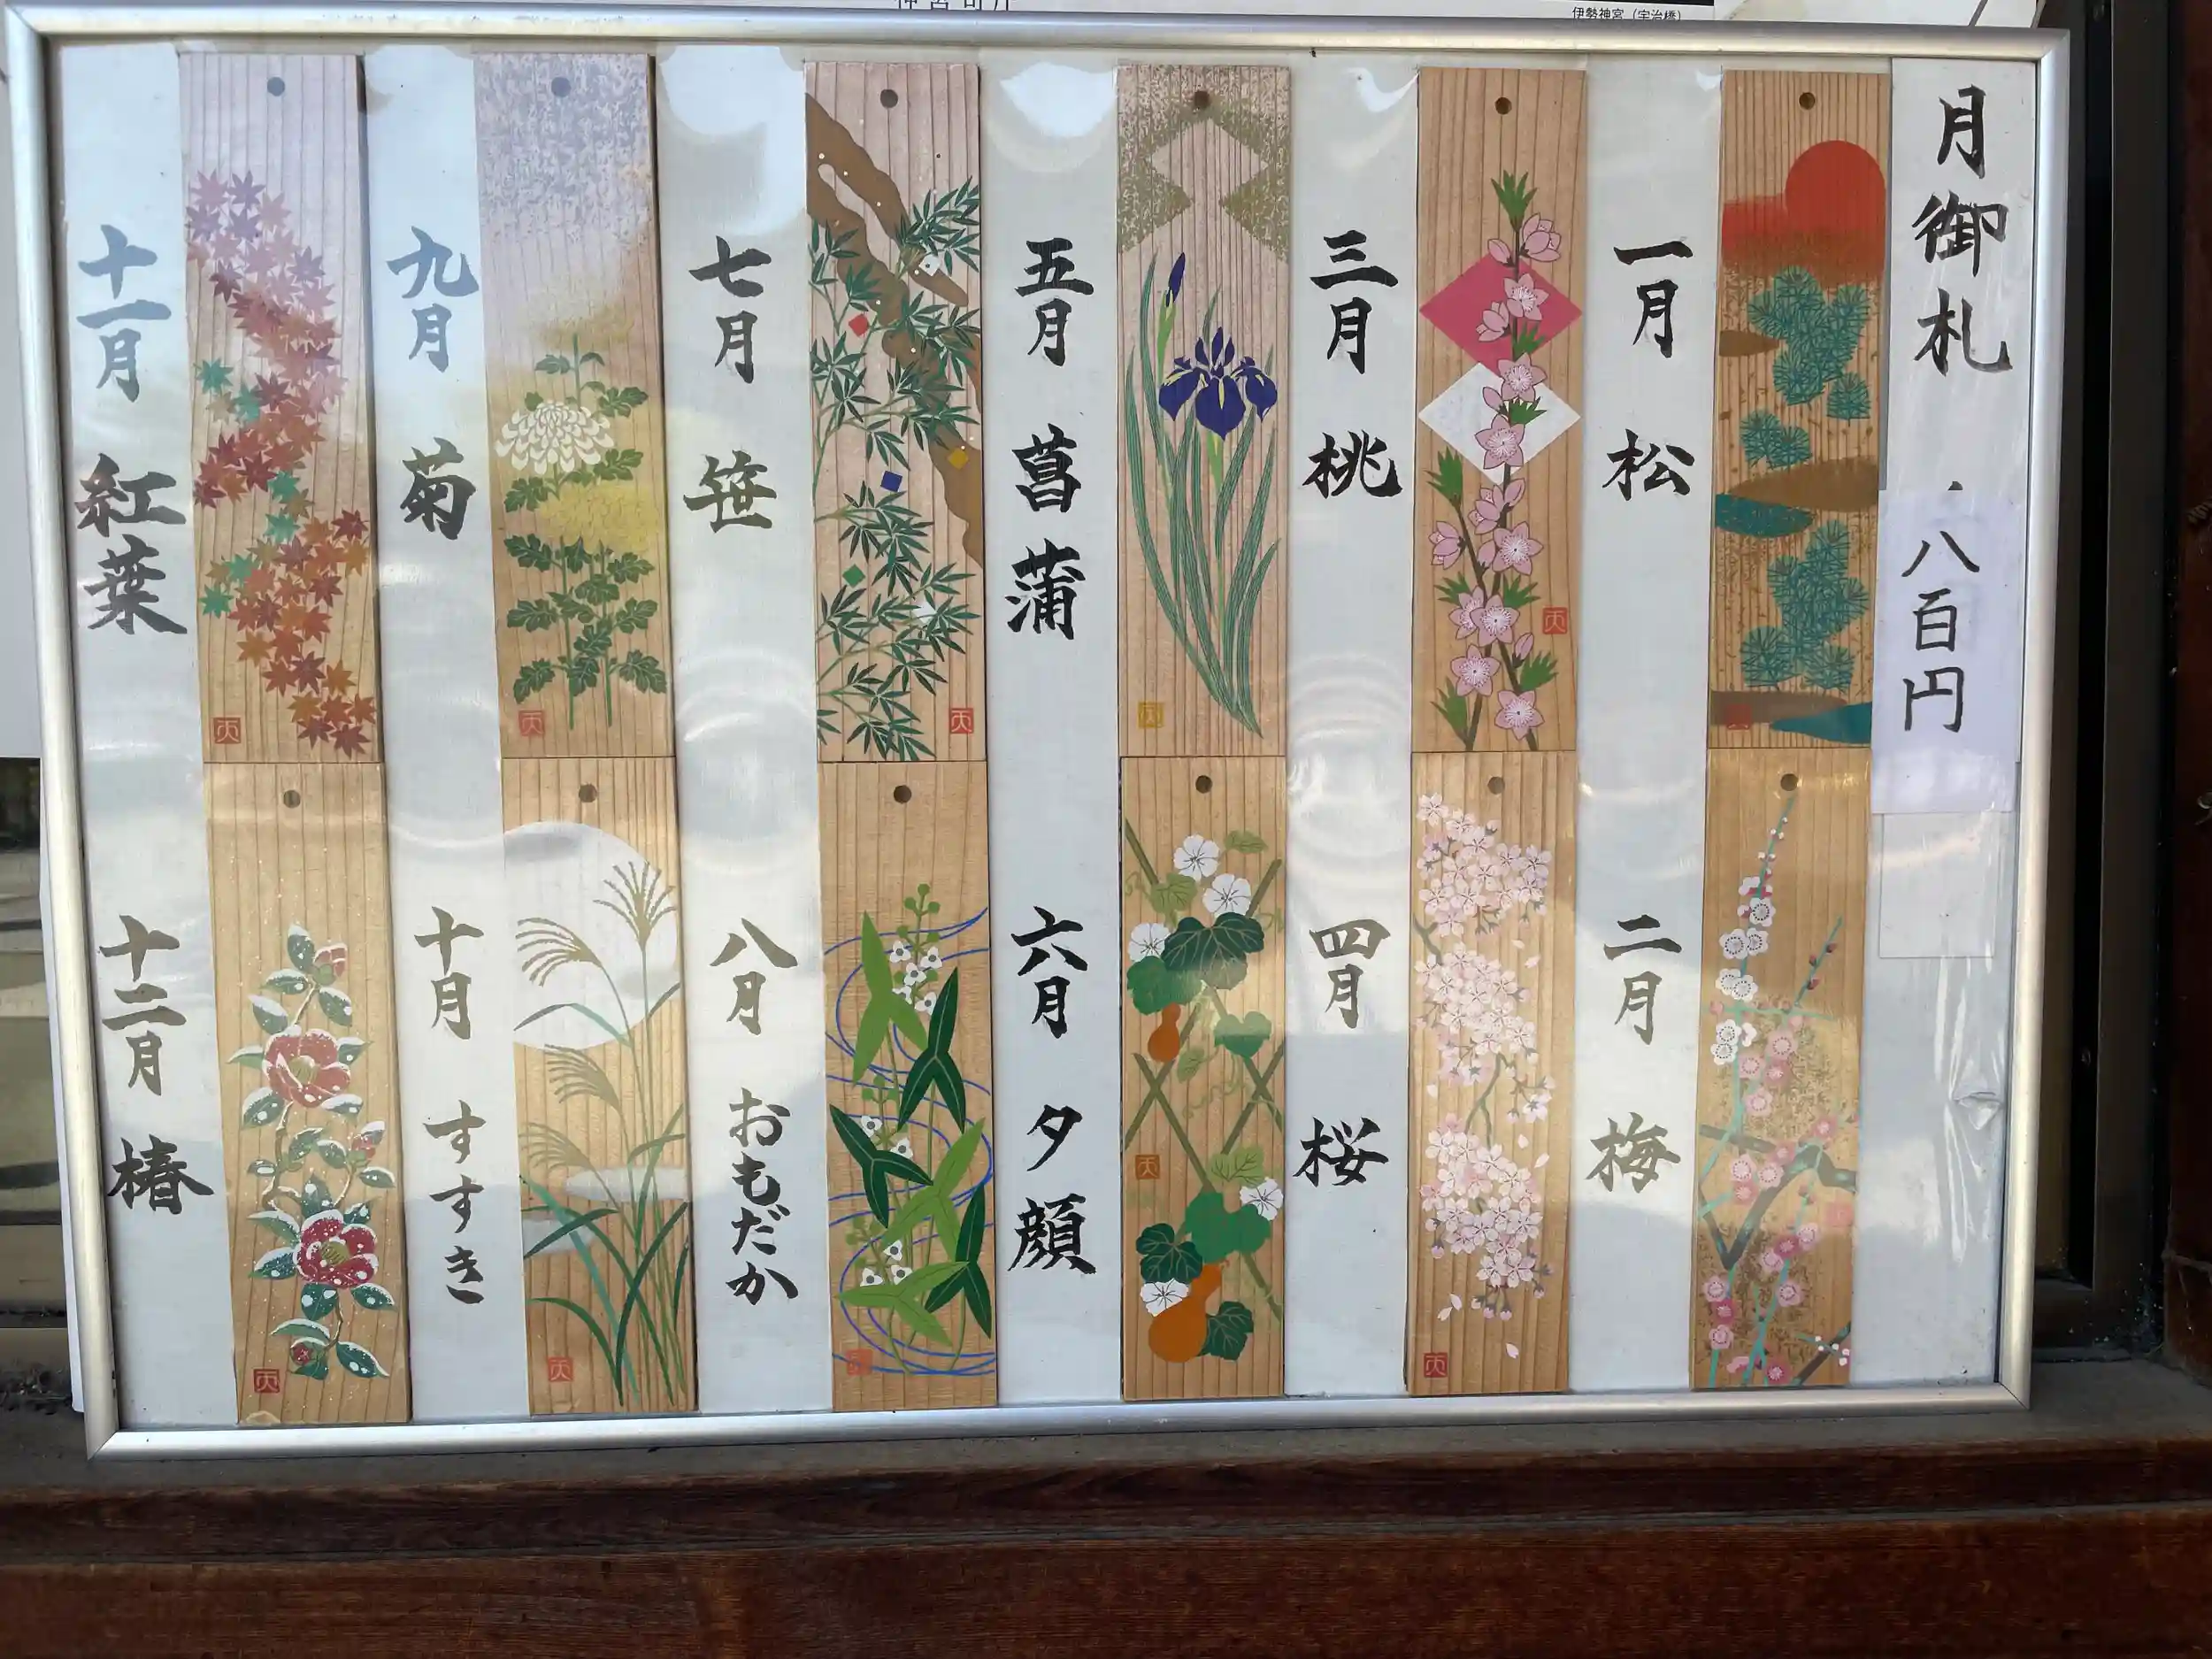 神宮司庁
伊勢神宮（宇治橋）
月御札
八百円
一月 松
二月 梅
三月 桃
四月 桜
五月 菖蒲
六月 夕顔
七月 笹
八月 おもだか
九月 菊
十月 すすき
十一月 紅葉
十二月 椿